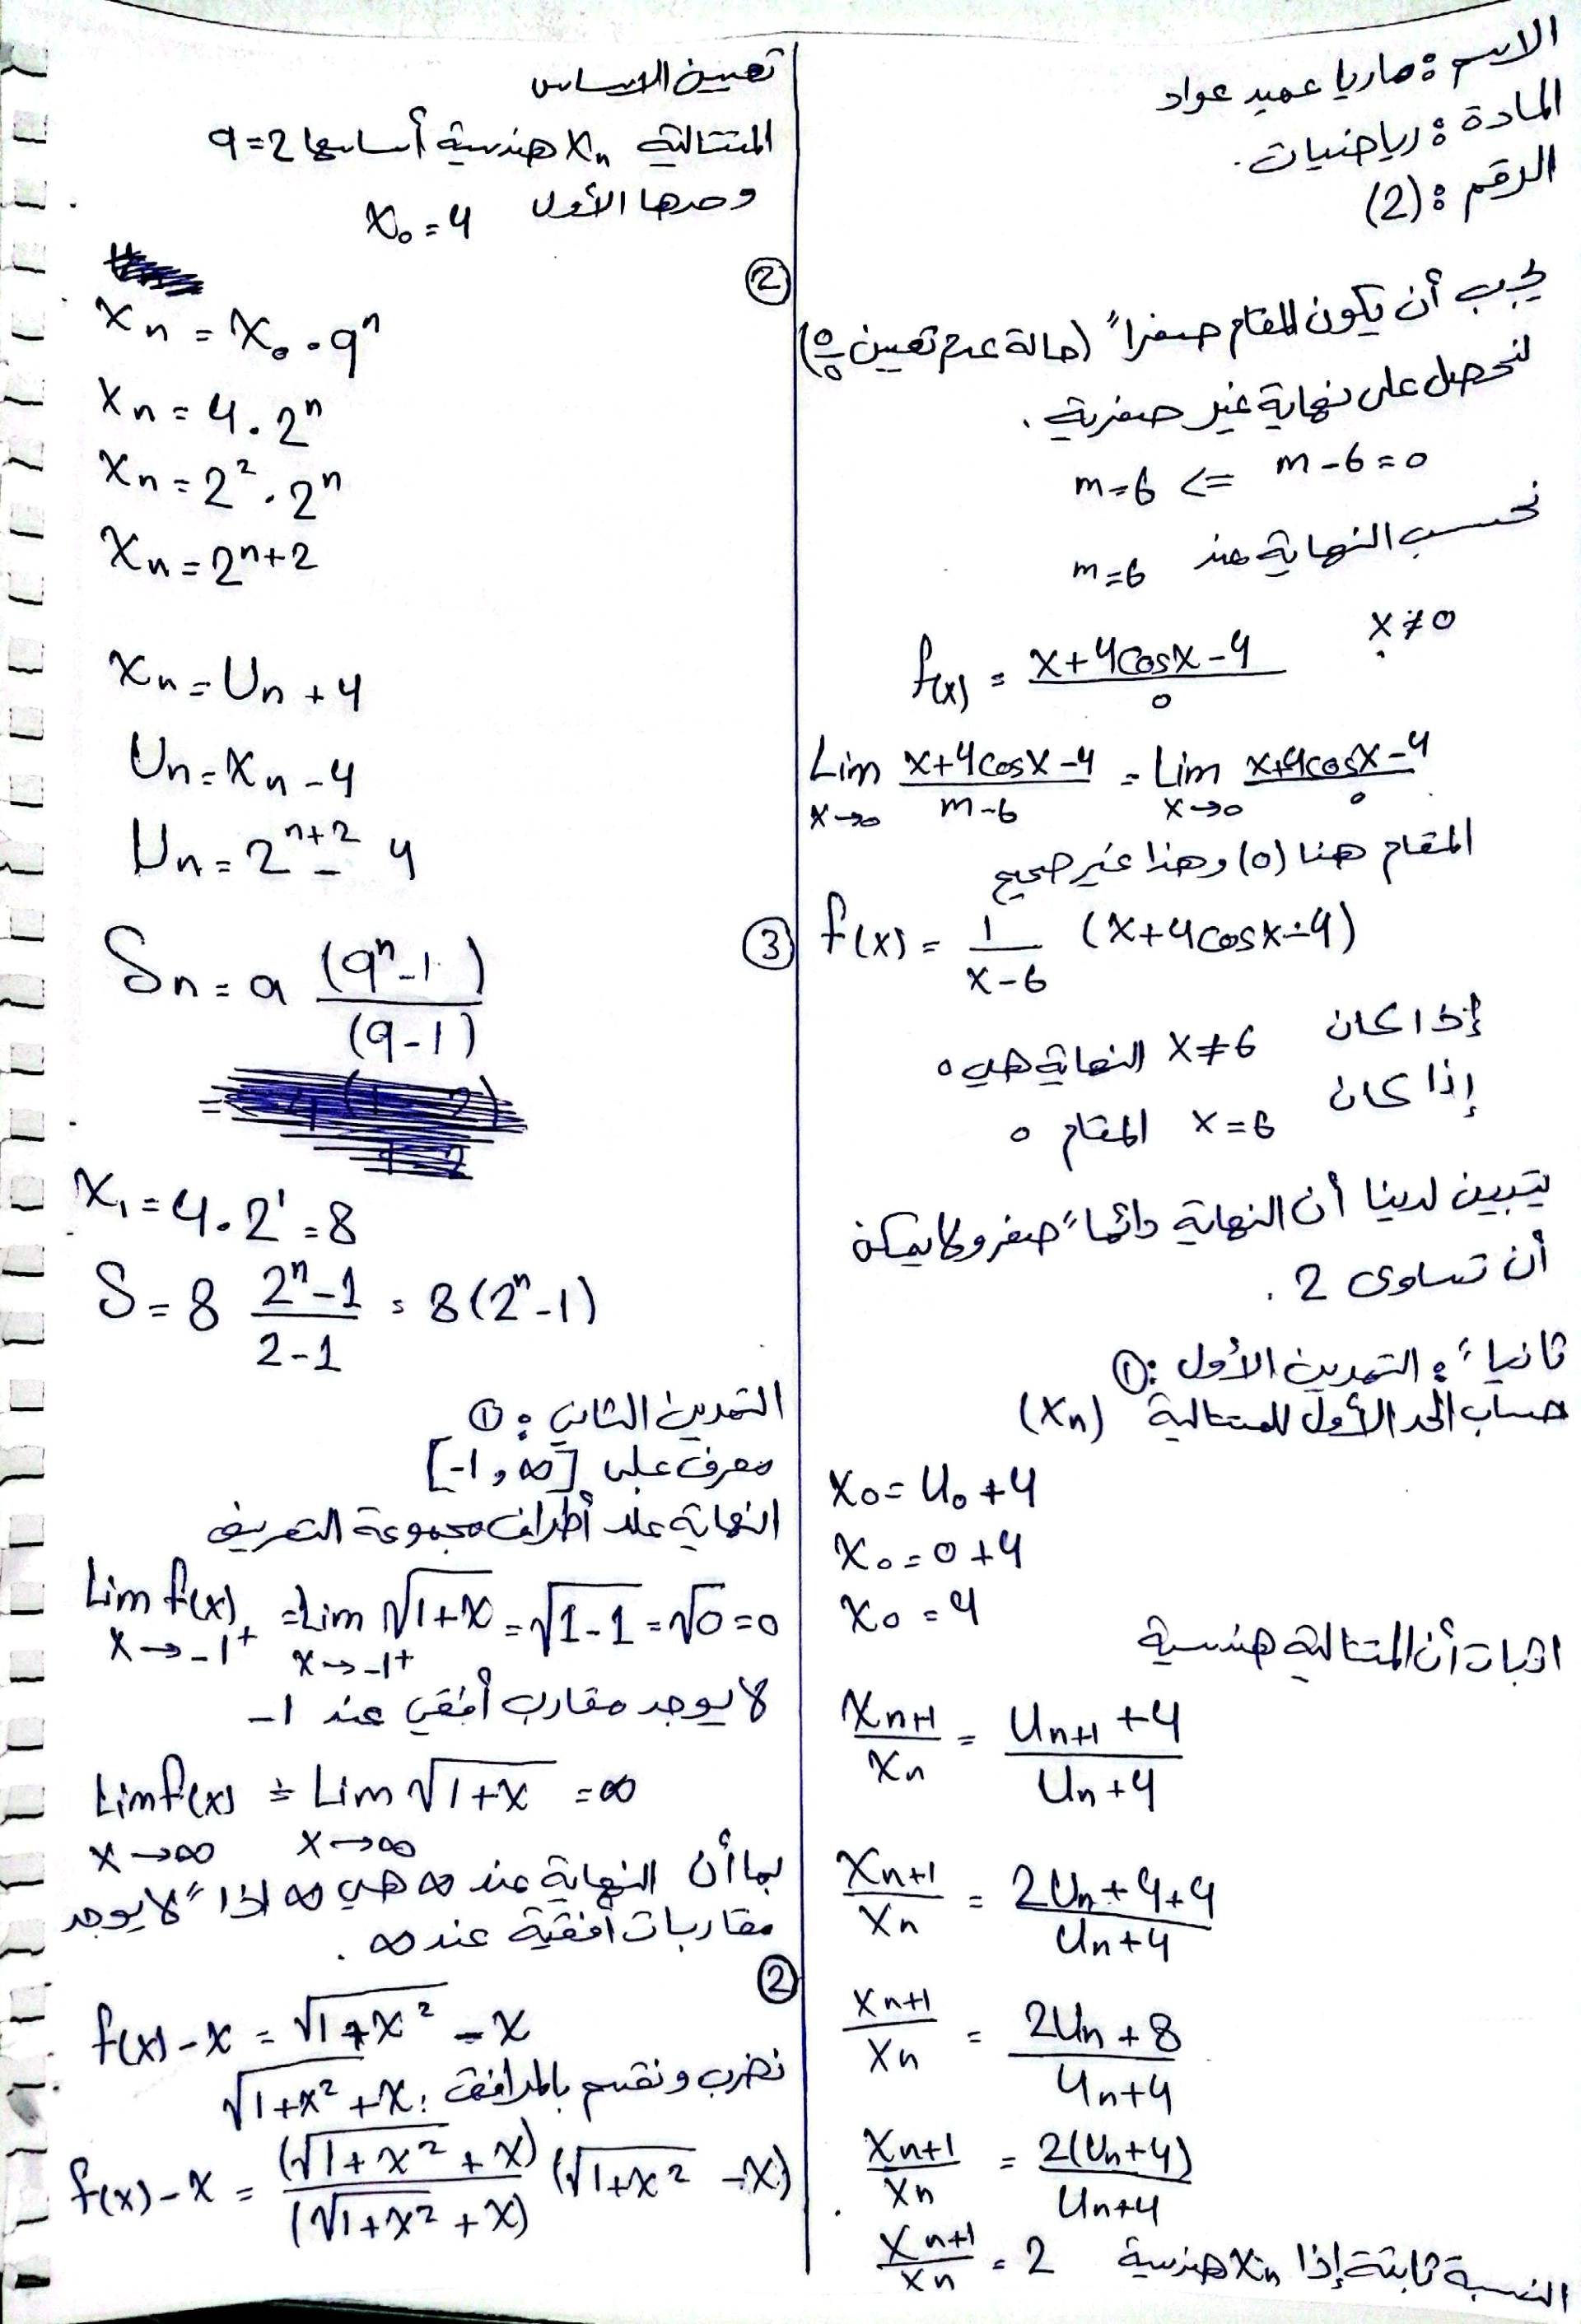 الاسم : ماريا عميد عواد
المادة : رياضيات .
الرقم : (2)
يجب أن يكون المقام صفراً (حالة عدم تعيين 0/0)
لنحصل على نهاية غير صفرية .
m=6 <= m-6=0
نحسب النهاية عند m=6
f(x) = (x+4cosx-4)/0 x≠0
Lim x→0 (x+4cosx-4)/(m-6) = Lim x→0 (x+4cosx-4)/0
المقام هنا (0) وهذا غير صحيح
f(x) = 1/(x-6) (x+4cosx-4)
إذا كان x≠6 النهاية هي 0
إذا كان x=6 المقام 0
يتبين لدينا أن النهاية دائماً صفر ولا يمكن
أن تساوي 2 .
ثانياً : التمرين الأول : ①
حساب الحد الأول للمتتالية (xn)
x0 = U0 + 4
x0 = 0 + 4
x0 = 4
اثبات أن المتتالية هندسية
xn+1/xn = (Un+1 + 4)/(Un + 4)
xn+1/xn = (2Un + 4 + 4)/(Un + 4)
xn+1/xn = (2Un + 8)/(Un + 4)
xn+1/xn = 2(Un + 4)/(Un + 4)
xn+1/xn = 2 النسبة ثابتة إذا xn هندسية
تعيين الاساس
المتتالية xn هندسية أساسها q=2
وحدها الأول x0 = 4
②
xn = x0 . qⁿ
xn = 4 . 2ⁿ
xn = 2² . 2ⁿ
xn = 2ⁿ⁺²
xn = Un + 4
Un = xn - 4
Un = 2ⁿ⁺² - 4
③
Sn = a (qⁿ-1)/(q-1)
x1 = 4 . 2¹ = 8
S = 8 (2ⁿ-1)/(2-1) = 8(2ⁿ-1)
التمرين الثاني : ①
معرف على [-1, ∞]
النهاية علد أطراف مجموعة التعريف
Lim f(x) x→-1⁺ = Lim x→-1⁺ √(1+x) = √(1-1) = √0 = 0
لا يوجد مقارب أفقي عند -1
Lim f(x) x→∞ = Lim x→∞ √(1+x) = ∞
بما أن النهاية عند ∞ هي ∞ اذاً لا يوجد
مقاربات أفقية عند ∞ .
②
f(x) - x = √(1+x²) - x
نضرب ونقسم بالمرافق : √(1+x²) + x
f(x) - x = (√(1+x²) + x)/(√(1+x²) + x) (√(1+x²) - x)